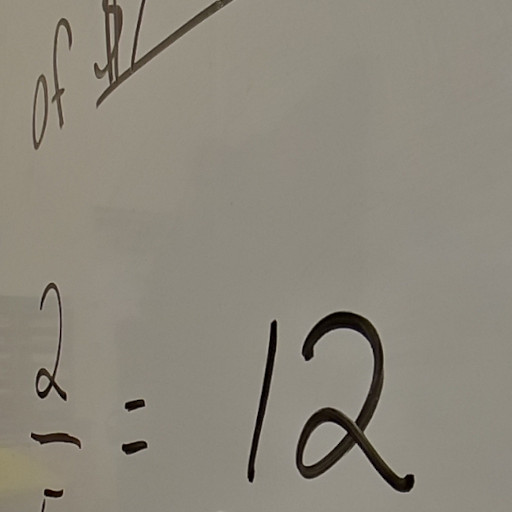 of $1
2
= 12